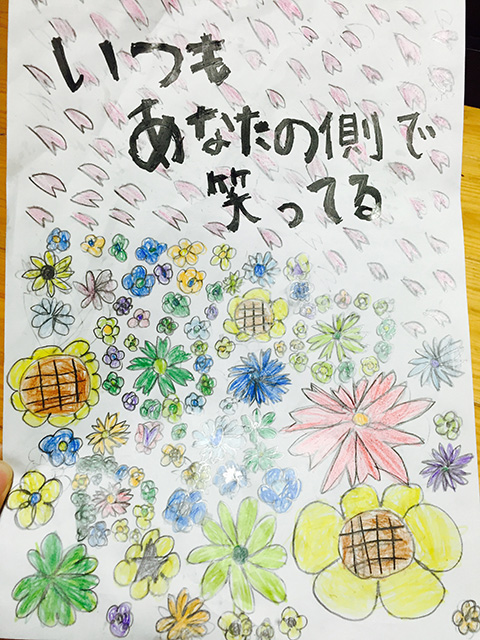 いつも
あなたの側で
笑ってる